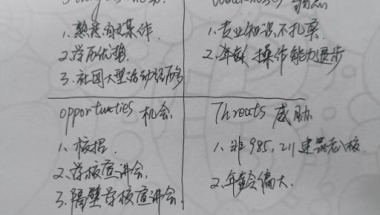 1. 熟悉办公软件.
2. 学历优势
3. 社团大型活动经历多
1. 专业知识不扎实
2. 年龄, 操作能力退步
opportunties 机会
1. 校招.
2. 学校宣讲会.
3. 隔壁学校宣讲会.
Threats 威胁
1. 非985, 211
2. 年龄偏大.